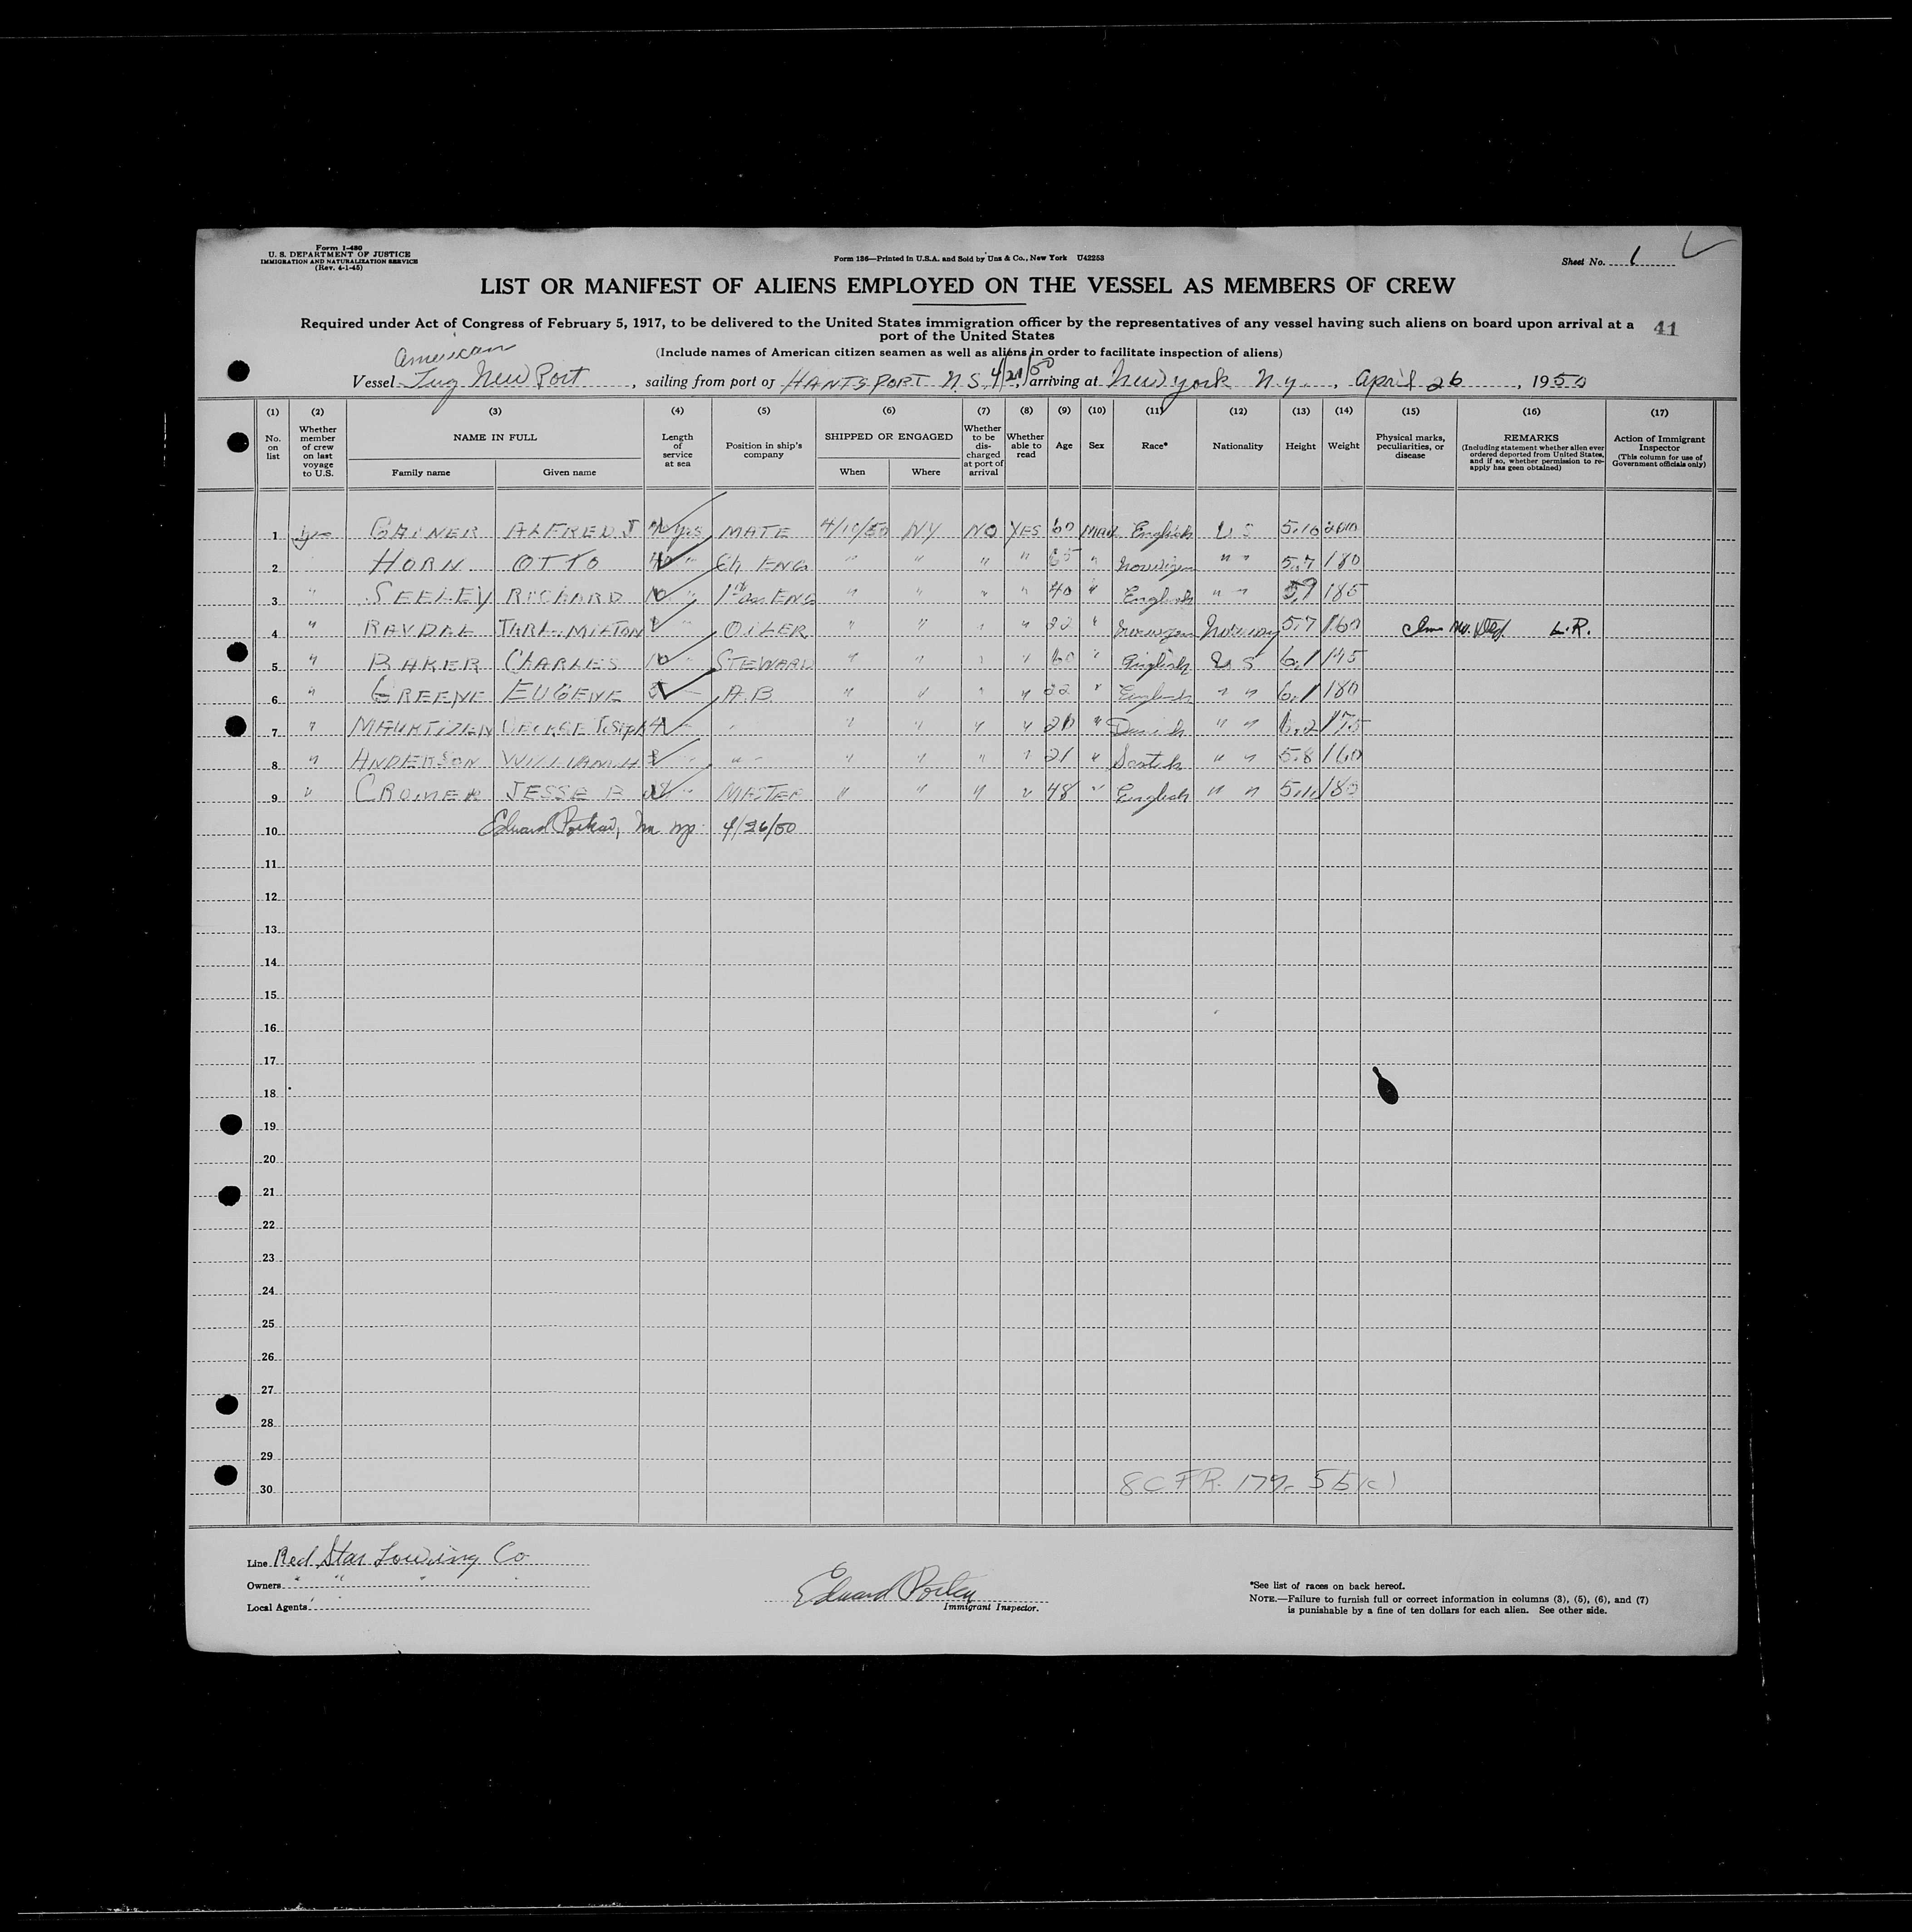 Form I-480
U. S. DEPARTMENT OF JUSTICE
IMMIGRATION AND NATURALIZATION SERVICE
(Rev. 4-1-45)
Form 136—Printed in U.S.A. and Sold by Unz & Co., New York U42253
Sheet No. 1
LIST OR MANIFEST OF ALIENS EMPLOYED ON THE VESSEL AS MEMBERS OF CREW
Required under Act of Congress of February 5, 1917, to be delivered to the United States immigration officer by the representatives of any vessel having such aliens on board upon arrival at a
port of the United States
41
(Include names of American citizen seamen as well as aliens in order to facilitate inspection of aliens)
American
Vessel Tug New Port, sailing from port of HANTSPORT N.S. 4/21/50, arriving at New York N.Y., April 26, 1950
(1) (2) (3) (4) (5) (6) (7) (8) (9) (10) (11) (12) (13) (14) (15) (16) (17)
No. on list
Whether member of crew on last voyage to U.S.
NAME IN FULL
Family name Given name
Length of service at sea
Position in ship's company
SHIPPED OR ENGAGED
When Where
Whether to be discharged at port of arrival
Whether able to read
Age
Sex
Race*
Nationality
Height
Weight
Physical marks, peculiarities, or disease
REMARKS
(Including statement whether alien ever ordered deported from United States, and if so, whether permission to re-apply has geen obtained)
Action of Immigrant Inspector
(This column for use of Government officials only)
1 ALFRED J yrs MATE 4/10/50 NY NO YES 60 Male English U S 5.10 200
2 HORN OTTO 40 " Ch ENG " " " " 65 " " " 5.7 180
3 " SEELEY RICHARD 10 " 1st As. ENG " " " " 40 " English " " 5.9 185
4 " RAVDAL MILTON " OILER " " " " 22 " Norway 5.7 160 L.R.
5 " BAKER CHARLES 10 " STEWARD " " " " 60 " English U S 6.1 145
6 " GREENE EUGENE 5 A.B. " " " " 22 " English " " 6.1 180
7 " GEORGE JOSEPH 4 " " " " " " " Danish " " 6.2 175
8 " ANDERSON WILLIAM H " " " " " " " 21 " Scotch " " 5.8 160
9 " CROMER JESSE B " MASTER " " " " 48 " English " " 180
10 Edward 4/26/50
11
12
13
14
15
16
17
18
19
20
21
22
23
24
25
26
27
28
29
30
8 CFR. 175(c)
Line Red Star Towing Co
Owners " " " "
Local Agents " "
Edward
Immigrant Inspector.
*See list of races on back hereof.
NOTE.—Failure to furnish full or correct information in columns (3), (5), (6), and (7)
is punishable by a fine of ten dollars for each alien. See other side.